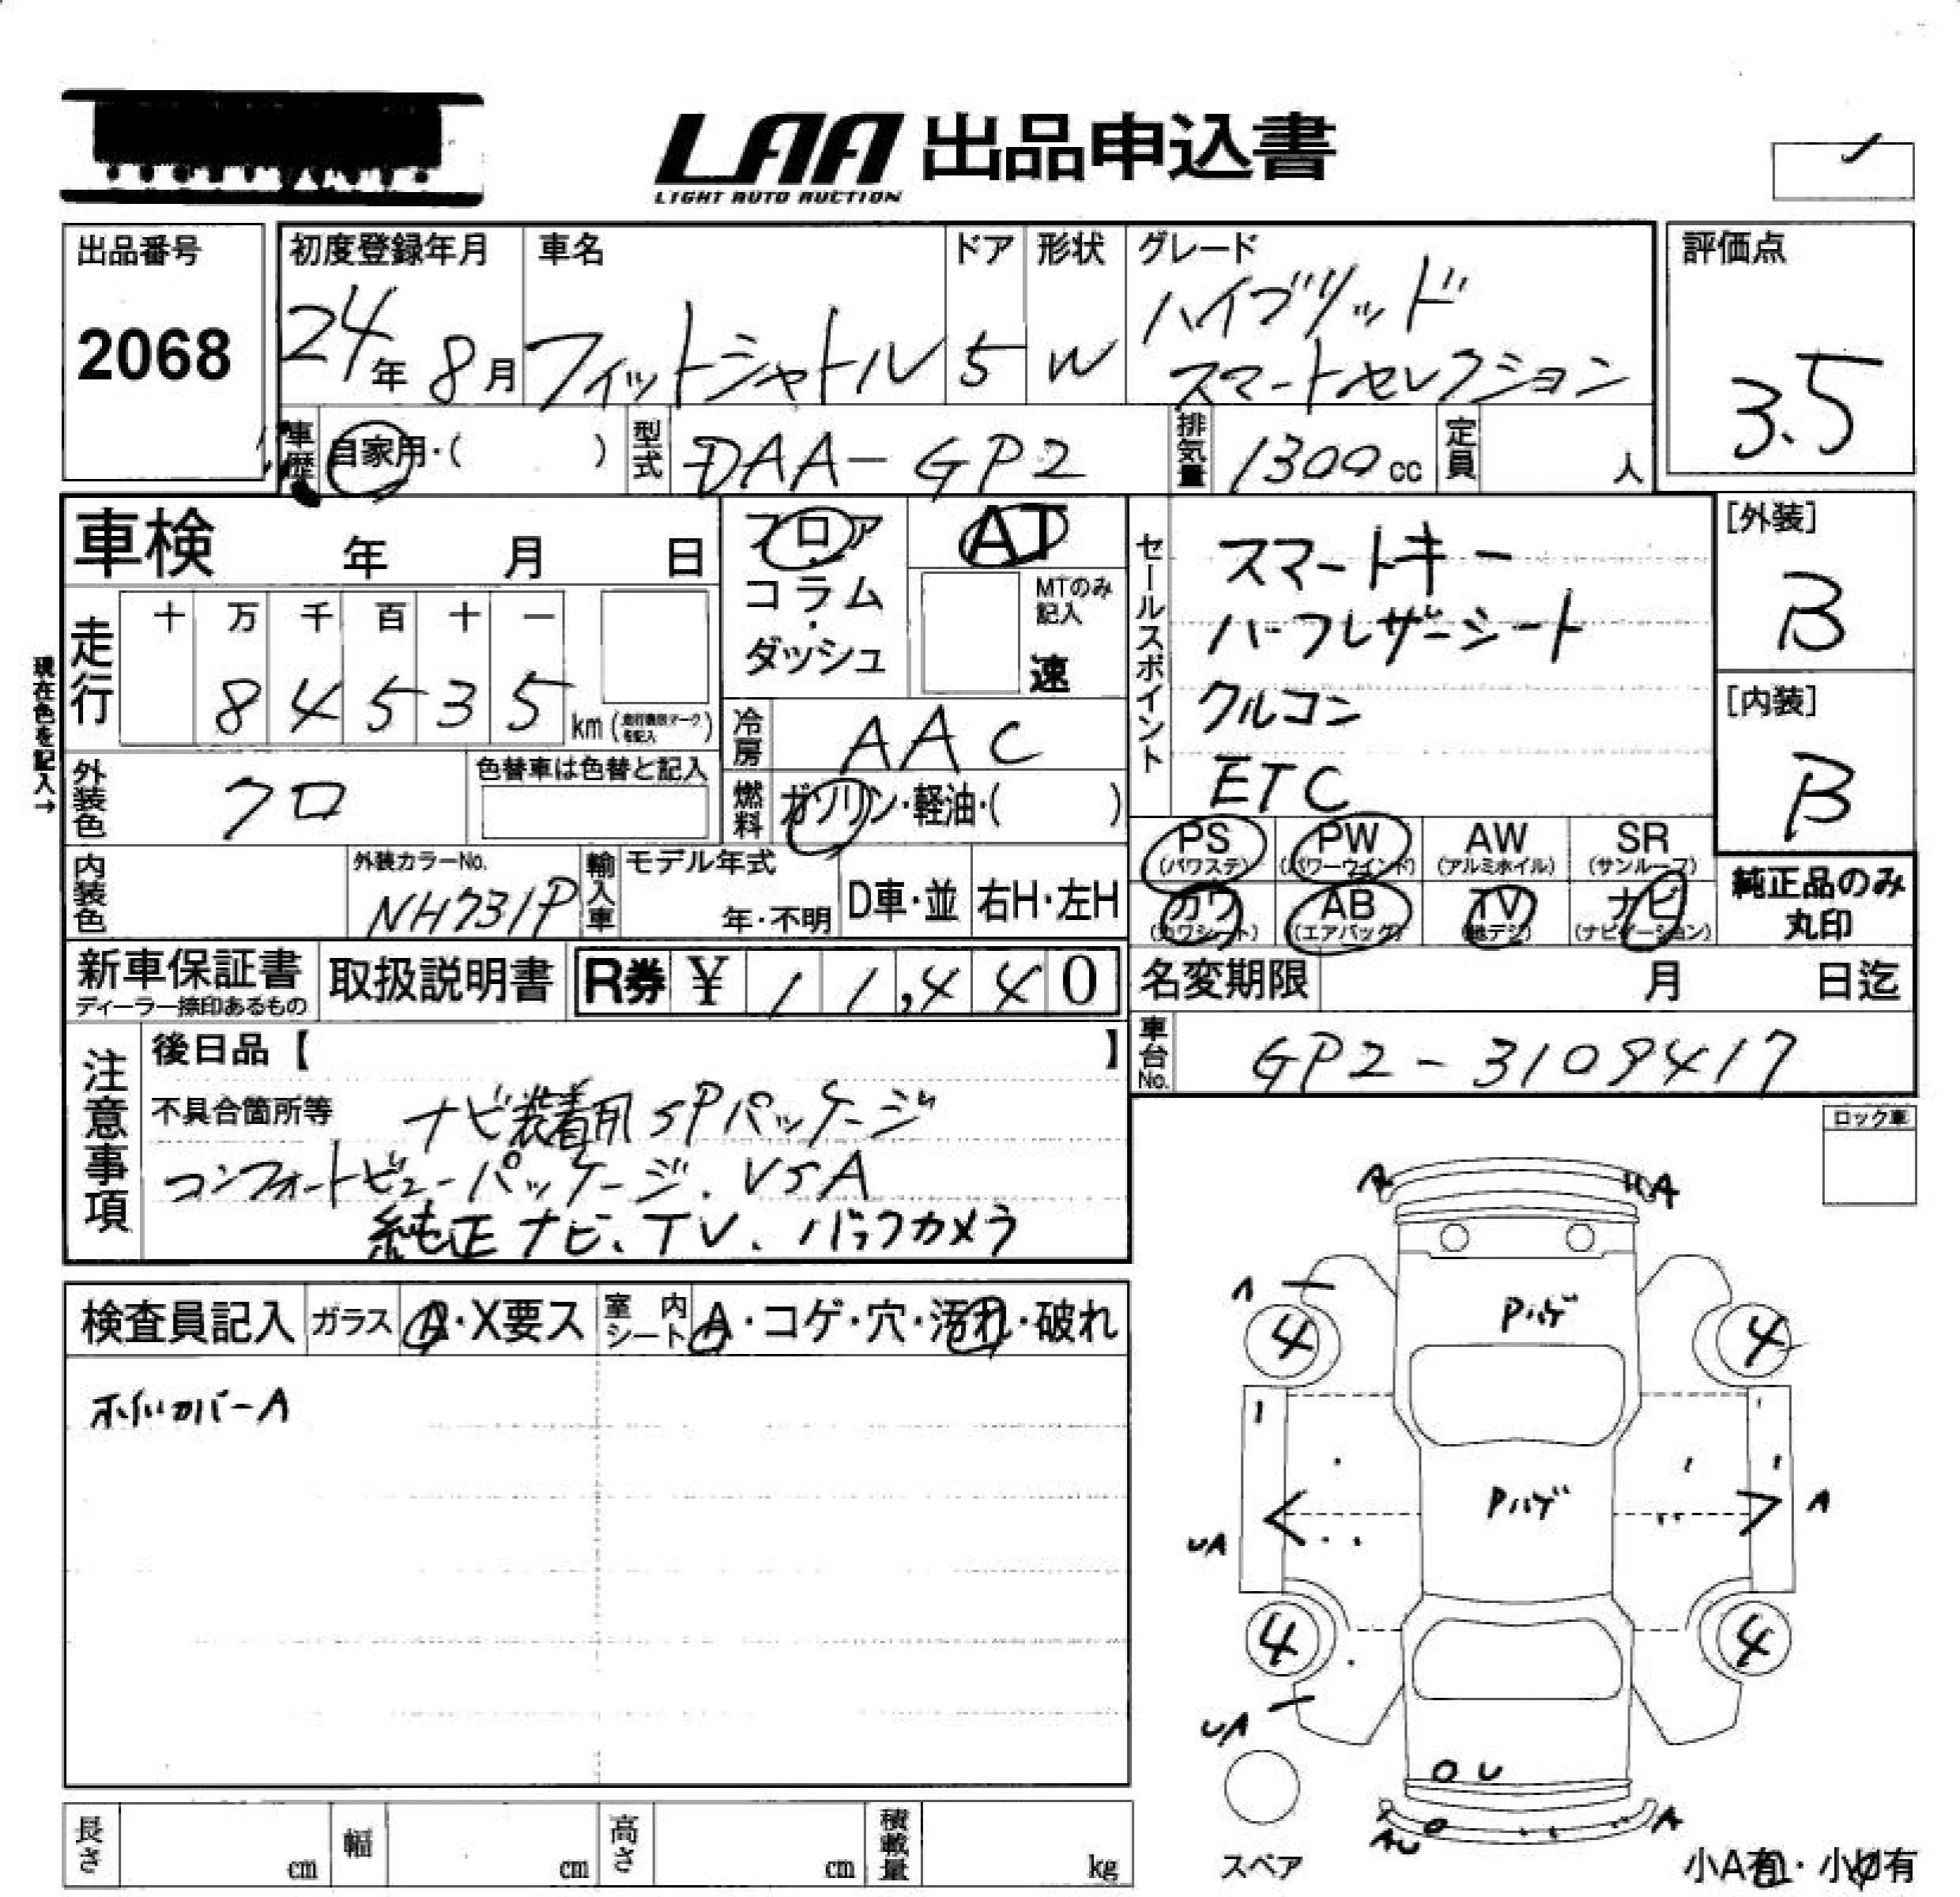 LAA 出品申込書
LIGHT AUTO AUCTION
出品番号
2068
初度登録年月
24年 8月
車名
フィットシャトル
ドア
5
形状
W
グレード
ハイブリッド
スマートセレクション
評価点
3.5
車歴
自家用・( )
型式
DAA-GP2
排気量
1300cc
定員
人
車検 年 月 日
フロア
コラム
・
ダッシュ
AT
MTのみ
記入
速
セールスポイント
スマートキー
ハーフレザーシート
クルコン
ETC
[外装]
B
[内装]
B
現在色を記入→
走行
十 万 千 百 十 一
8 4 5 3 5 km
冷房
AAC
外装色
クロ
色替車は色替と記入
燃料
ガソリン・軽油・( )
PS PW AW SR
(パワステ) (パワーウインド) (アルミホイル) (サンルーフ)
カワ AB TV ナビ
(カワシート) (エアバッグ) (地デジ) (ナビゲーション)
純正品のみ
丸印
内装色
外装カラーNo.
NH731P
輸入車
モデル年式
年・不明
D車・並
右H・左H
新車保証書
ディーラー捺印あるもの
取扱説明書
R券 ¥ 1 1,4 4 0
名変期限 月 日迄
車台No.
GP2-3109417
注意事項
後日品【 】
不具合箇所等 ナビ装着用SPパッケージ
コンフォートビューパッケージ、VSA
純正ナビ、TV、バックカメラ
ロック車
検査員記入
ガラス
A・X要ス
室内シート
A・コゲ・穴・汚れ・破れ
ホイルカバーA
A A
A
Pハゲ
4 4
Pハゲ
A
UA
4 4
UA
U
A
AU
スペア
小A有・小U有
長さ cm
幅 cm
高さ cm
積載量 kg